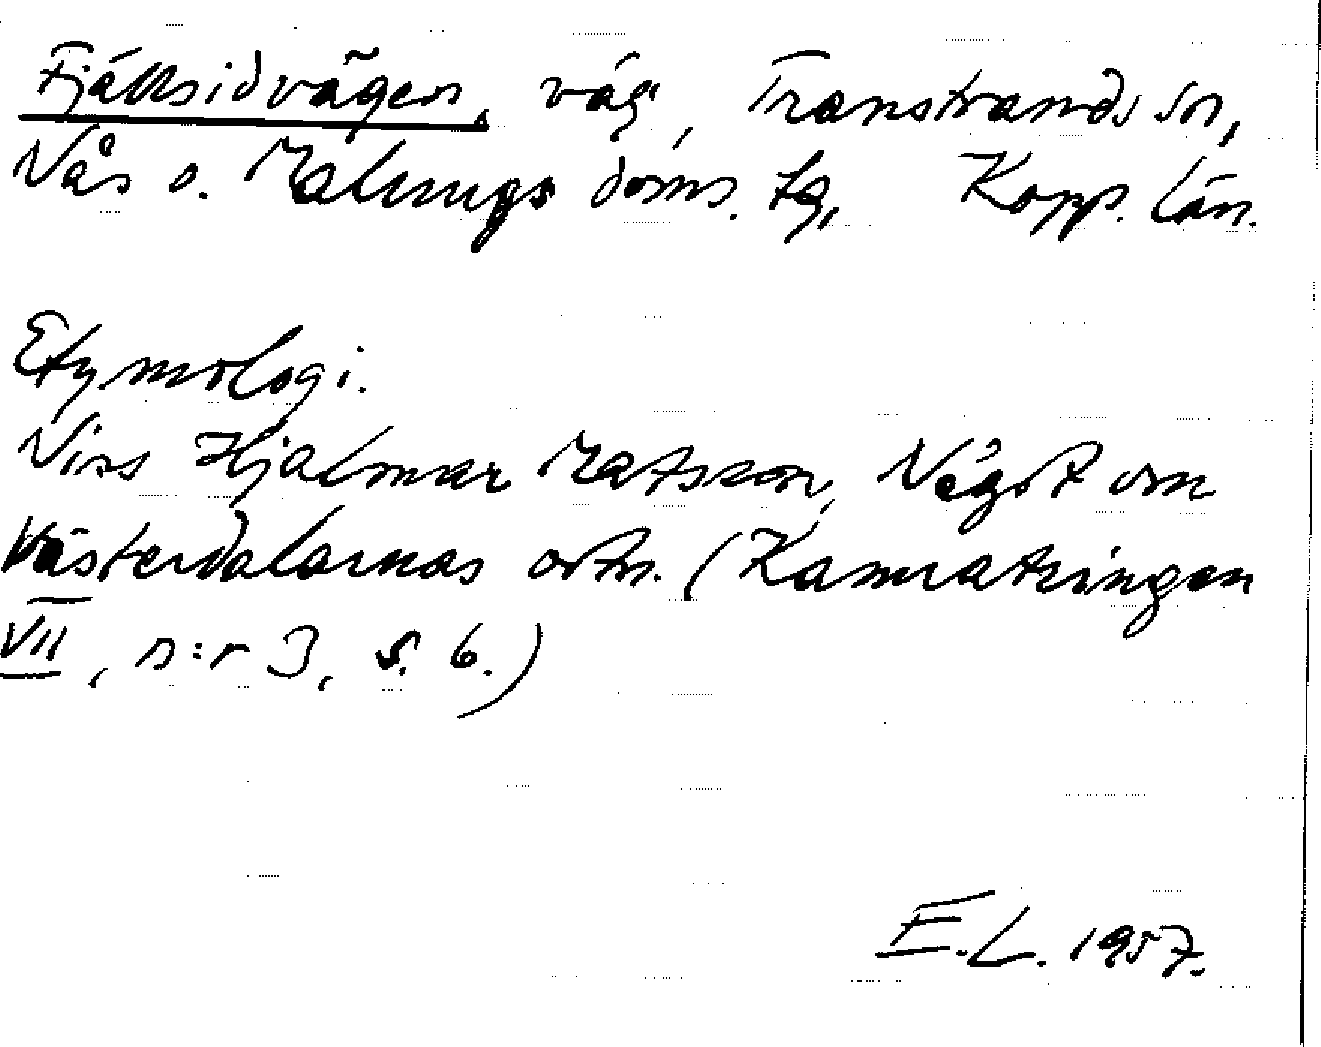 Fjällsidvägen, väg, Transtrands sn,
Nås o. Malungs doms. tg, Kopp. län.
Etymologi.
Viss Hjalmar Matsson, Något om
Västerdalarnas ortn. (Kamratringen
VII, n:r 3, s. 6.)
E.L. 1957.